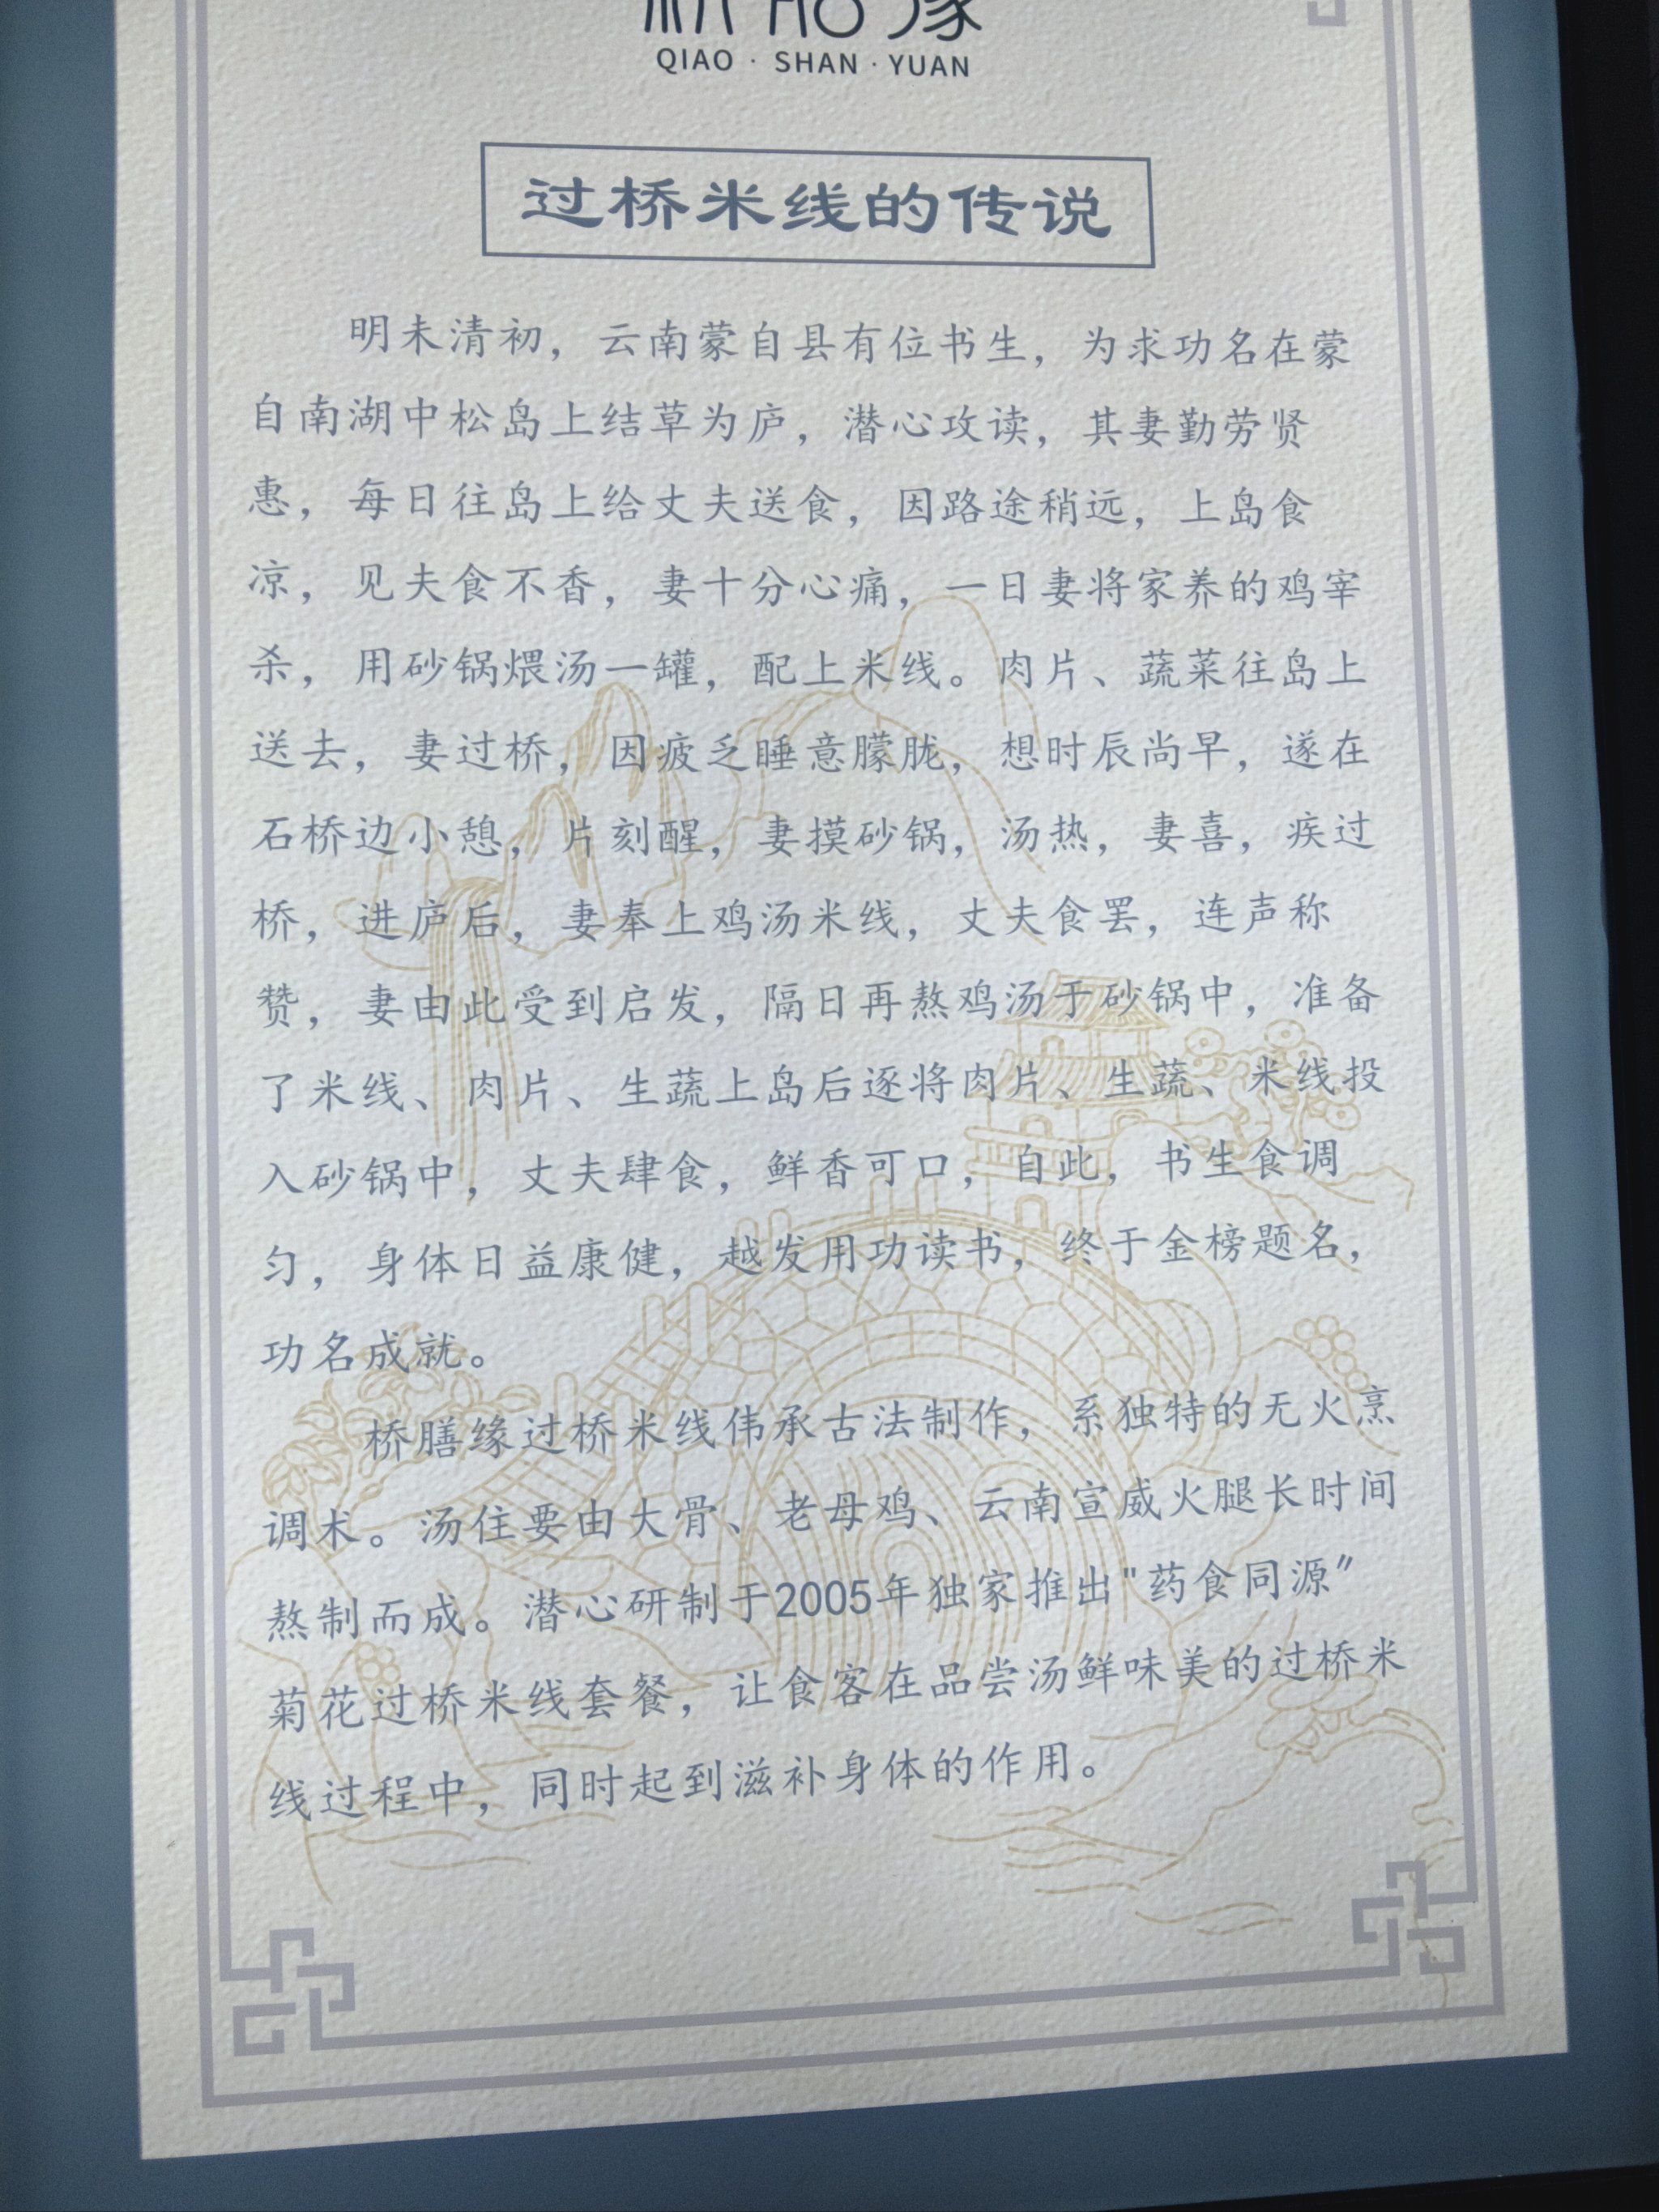 QIAO · SHAN · YUAN
过桥米线的传说
明未清初，云南蒙自县有位书生，为求功名在蒙
自南湖中松岛上结草为庐，潜心攻读，其妻勤劳贤
惠，每日往岛上给丈夫送食，因路途稍远，上岛食
凉，见夫食不香，妻十分心痛，一日妻将家养的鸡宰
杀，用砂锅煨汤一罐，配上米线。肉片、蔬菜往岛上
送去，妻过桥，因疲乏睡意朦胧，想时辰尚早，遂在
石桥边小憩，片刻醒，妻摸砂锅，汤热，妻喜，疾过
桥，进庐后，妻奉上鸡汤米线，丈夫食罢，连声称
赞，妻由此受到启发，隔日再熬鸡汤于砂锅中，准备
了米线、肉片、生蔬上岛后逐将肉片、生蔬、米线投
入砂锅中，丈夫肆食，鲜香可口，自此，书生食调
匀，身体日益康健，越发用功读书，终于金榜题名，
功名成就。
桥膳缘过桥米线伟承古法制作，系独特的无火烹
调术。汤住要由大骨、老母鸡、云南宣威火腿长时间
熬制而成。潜心研制于2005年独家推出"药食同源"
菊花过桥米线套餐，让食客在品尝汤鲜味美的过桥米
线过程中，同时起到滋补身体的作用。